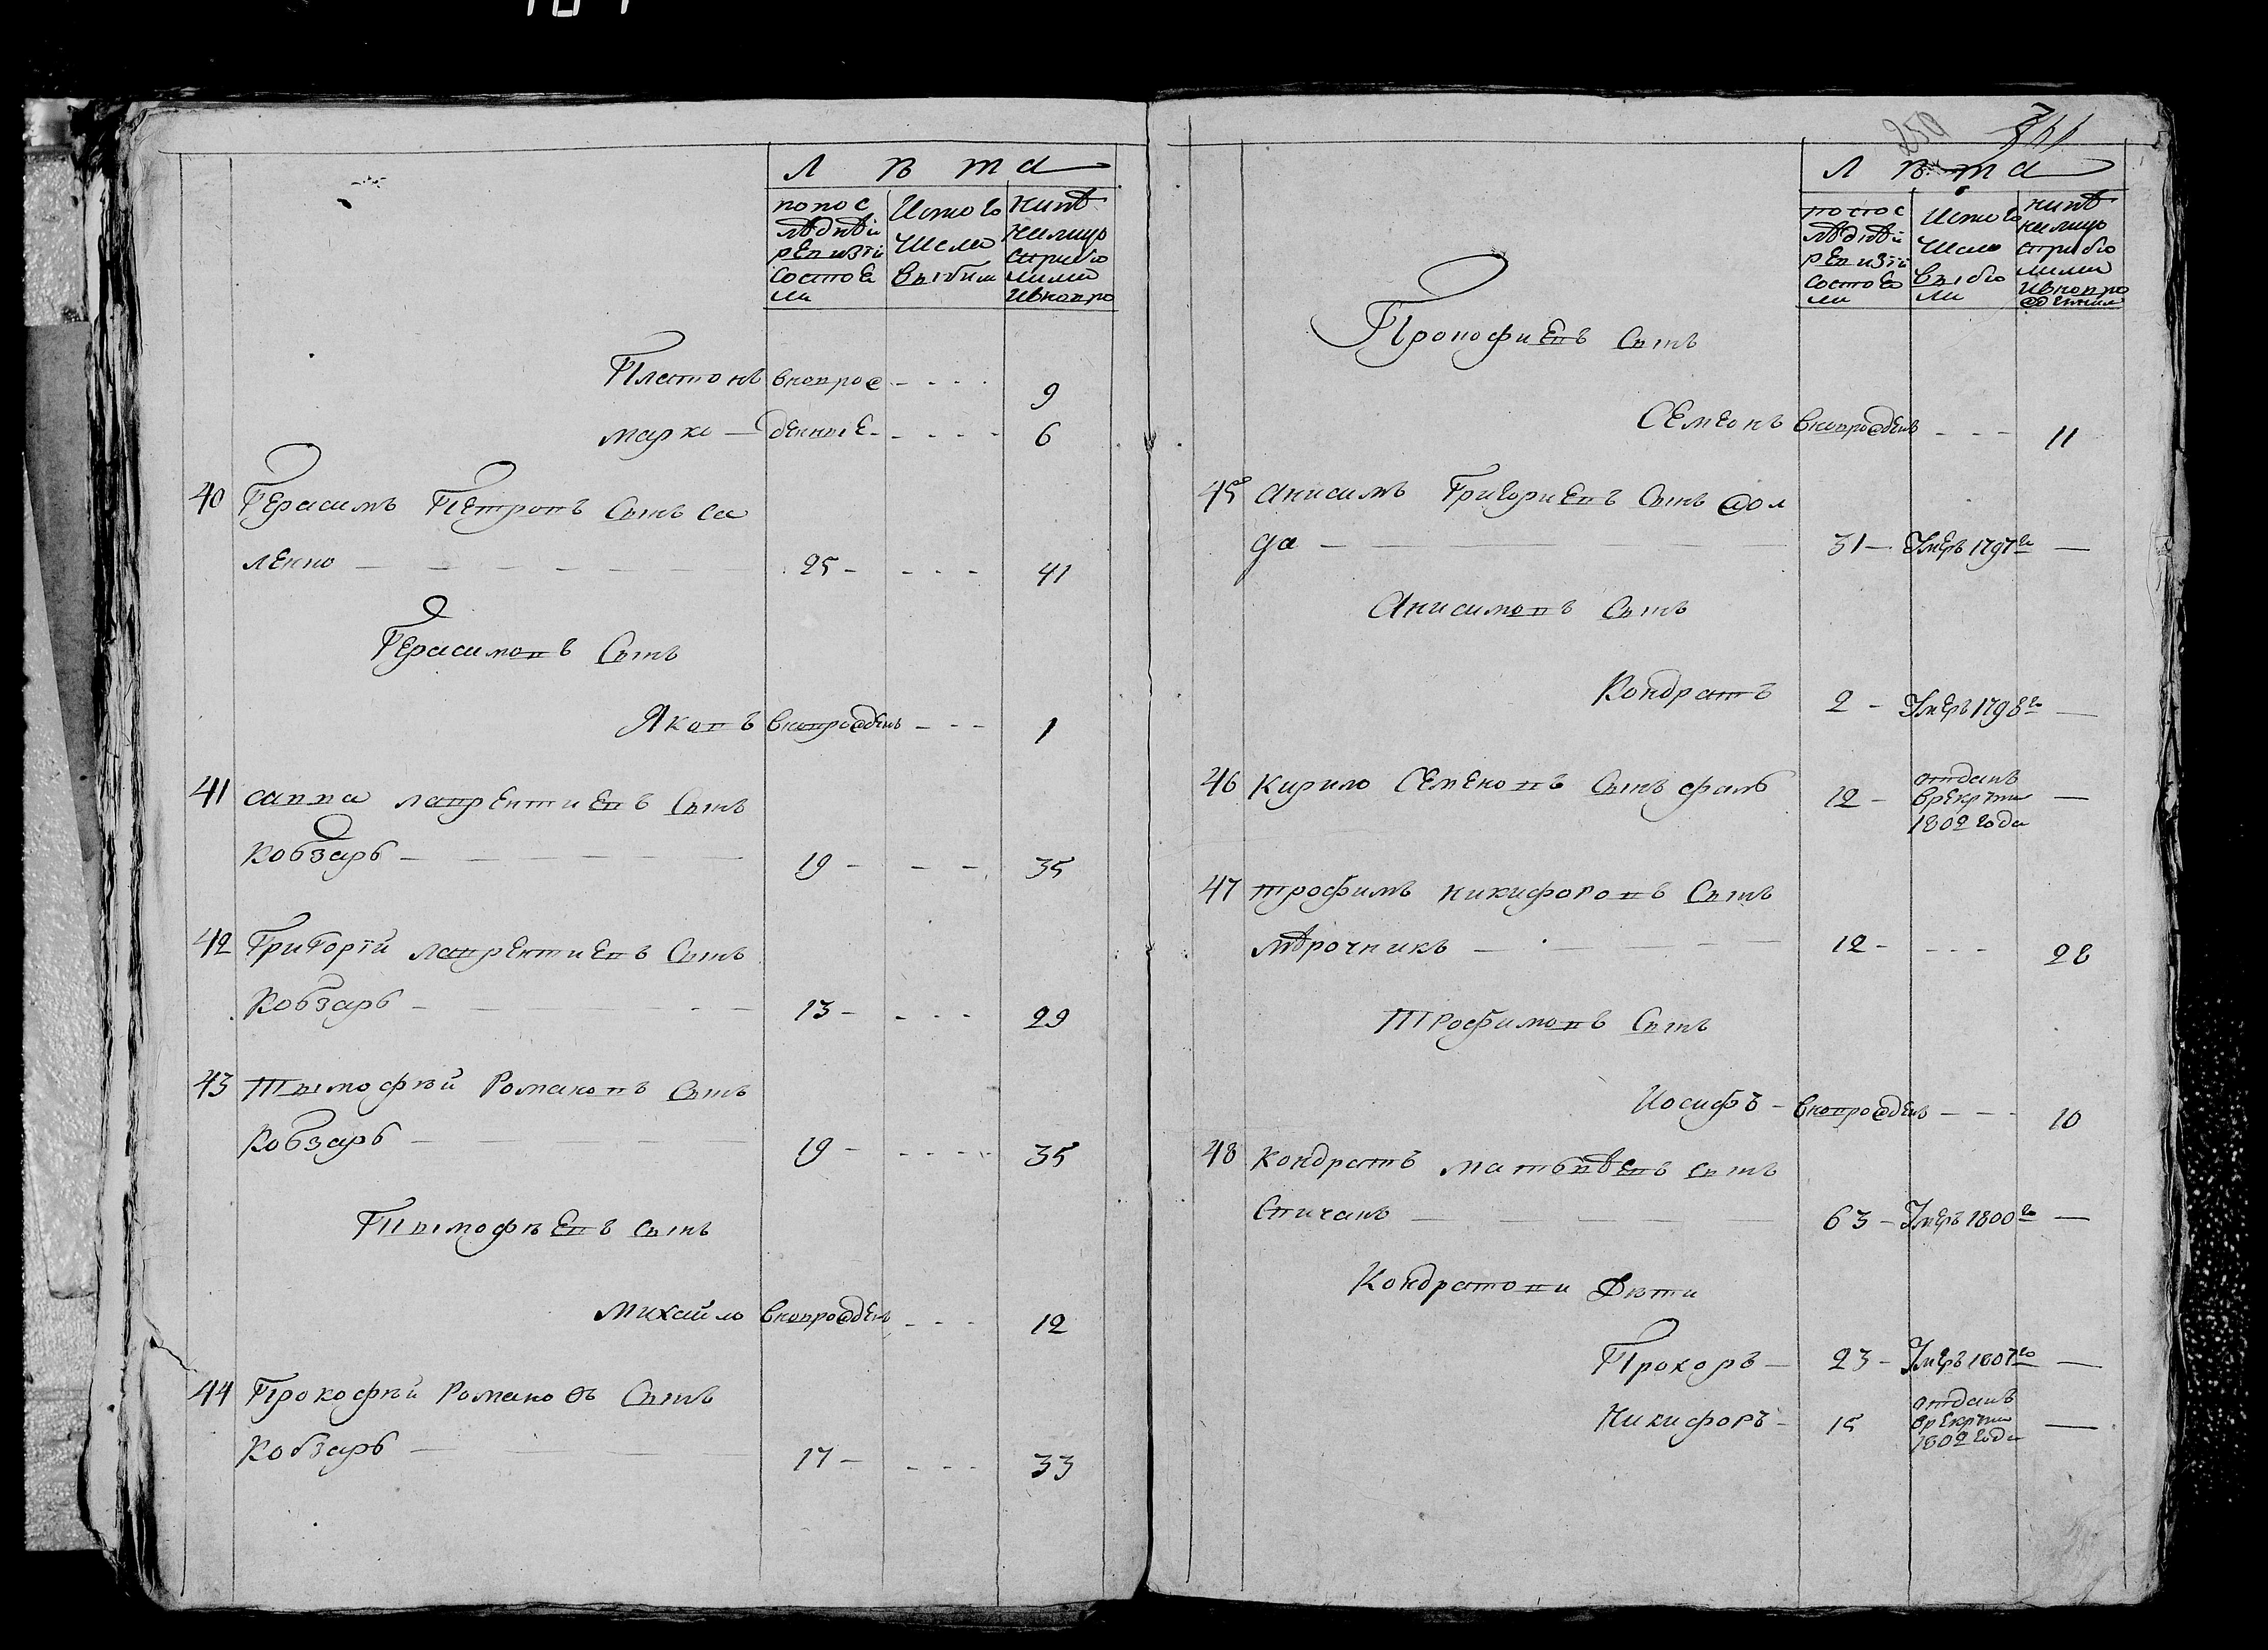 Лѣта
попос
лѣднѣй
ревизїй
состоя
ли
Истого
Числа
выбыли
нынѣ
налицо
сприбы
лыми
ивновро
Платонъ вновро 9
Марко — жденные 6
40 Герасимъ Петровъ Сынъ Са
ленко — 25 - - - - 41
Герасимовъ Сынъ
Яковъ вноврожденъ - - - 1
41 Савва Лаврентиевъ Сынъ
Кобзарь — 19 - - - 35
42 Григорїй Лаврентиевъ Сынъ
Кобзарь — 13 - - - - 29
43 Тымофѣй Романовъ Сынъ
Кобзарь — 19 - - - - 35
Тымофѣевъ Сынъ
Михайло вноврожденъ - - - 12
44 Прокофѣй Романовъ Сынъ
Кобзарь — 17 - - - - 33
250
Лѣта
попос
лѣднѣй
ревизїй
состоя
ли
Истого
Числа
выбы
ли
нынѣ
налицо
сприбы
лыми
ивновро
жденными
Прокофиевъ Сынъ
Семенъ вноврожденъ - - - 11
45 Анисимъ Григориевъ Сынъ Жол
да — 31 - Умеръ 1797го —
Анисимовъ Сынъ
Кондратъ 2 - Умеръ 1798го —
46 Кирило Семеновъ Сынъ 12 - отданъ —
врекруты
1802 года
47 Трофимъ Никифоровъ Сынъ
Мѣрочникъ — 12 - - - - 28
Трофимовъ Сынъ
Иосифъ - вноврожденъ - - - 10
48 Кондратъ Матвѣевъ Сынъ
Спичакъ — 63 - Умеръ 1800го —
Кондратови Дѣти
Прохоръ — 23 - Умеръ 1807го —
Никифоръ - 15 отданъ —
врекруты
1802 года